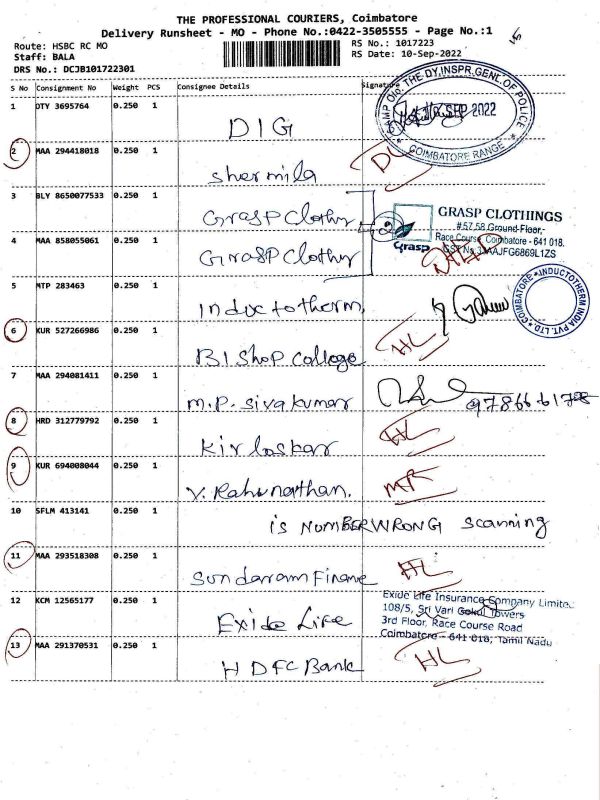 THE PROFESSIONAL COURIERS, Coimbatore
Delivery Runsheet - MO - Phone No.:0422-3505555 - Page No.:1
Route: HSBC RC MO
RS No.: 1017223
Staff: BALA
RS Date: 10-Sep-2022
DRS No.: DCJB101722301
S No Consignment No Weight PCS Consignee Details Signature
1 DTY 3695764 0.250 1
DIG
STAMP O/o. THE DY.INSPR.GENL.OF POLICE
SEP 2022
* COIMBATORE RANGE *
2 MAA 294418018 0.250 1
Shermila
DL
3 BLY 8650077533 0.250 1
Grasp Clothy
4 MAA 858055061 0.250 1
Grasp Clothy
2
Grasp
GRASP CLOTHINGS
#57,58 Ground Floor,
Race Course, Coimbatore - 641 018.
5 MTP 283463 0.250 1
Inductotherm
COIMBATORE * INDUCTOTHERM INDIA PVT. LTD. *
6 KUR 527266986 0.250 1
BIShop College
HL
7 MAA 294081411 0.250 1
M.P. Sivakumar
8 HRD 312779792 0.250 1
Kirloskar
HL
9 KUR 694008044 0.250 1
V. Rahunathan.
MR
10 SFLM 413141 0.250 1
is NUMBER WRONG Scanning
11 MAA 293518308 0.250 1
Sundaram Finane
HL
12 KCM 12565177 0.250 1
Exide Life
Exide Life Insurance Company Limited
108/5, Sri Vari Gokul Towers
3rd Floor, Race Course Road
Coimbatore - 641 018, Tamil Nadu
13 MAA 291370531 0.250 1
HDFC Bank
HL